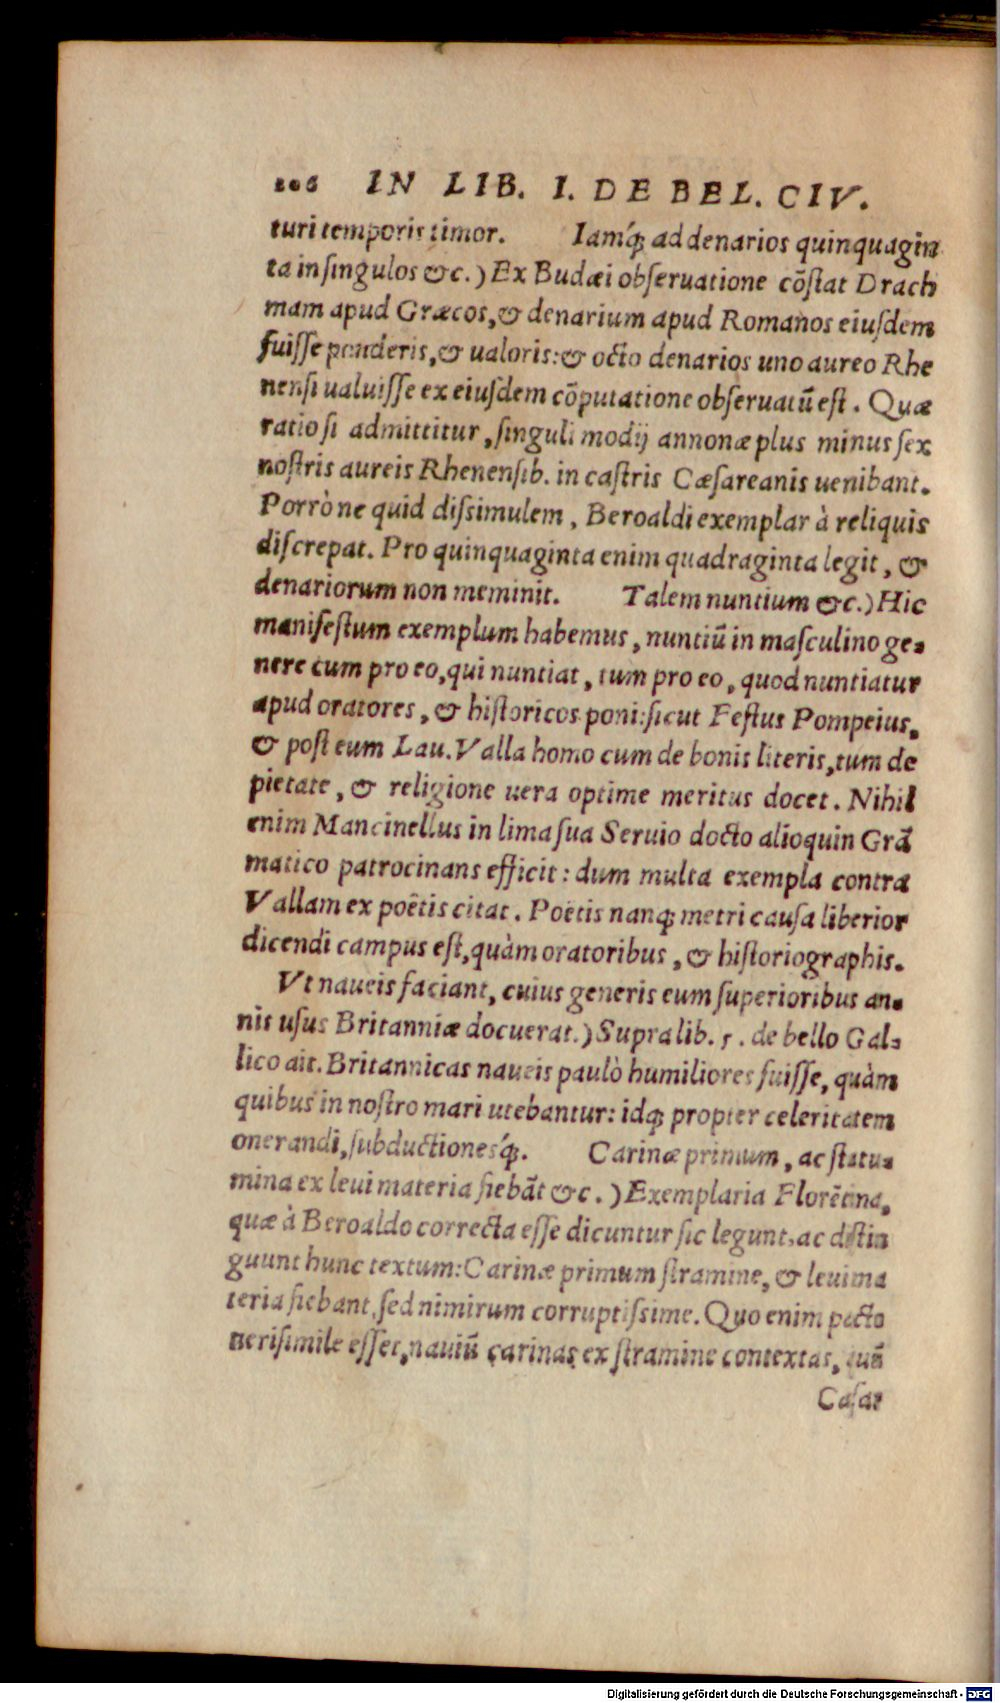 106 IN LIB. I. DE BEL. CIV.
turi temporis timor. Iamq́; ad denarios quinquagin
ta in singulos &c.) Ex Budæi obseruatione cõstat Drach
mam apud Græcos, & denarium apud Romanos eiusdem
fuisse ponderis, & ualoris: & octo denarios uno aureo Rhe
nensi ualuisse ex eiusdem cõputatione obseruatũ est. Quæ
ratio si admittitur, singuli modij annonæ plus minus sex
nostris aureis Rhenensib. in castris Cæsareanis uenibant.
Porrò ne quid dissimulem, Beroaldi exemplar à reliquis
discrepat. Pro quinquaginta enim quadraginta legit, &
denariorum non meminit. Talem nuntium &c.) Hic
manifestum exemplum habemus, nuntiũ in masculino ge-
nere cum pro eo, qui nuntiat, tum pro eo, quod nuntiatur
apud oratores, & historicos poni: sicut Festus Pompeius,
& post eum Lau. Valla homo cum de bonis literis, tum de
pietate, & religione uera optime meritus docet. Nihil
enim Mancinellus in lima sua Seruio docto alioquin Grã
matico patrocinans efficit: dum multa exempla contra
Vallam ex poëtis citat. Poëtis nanq; metri causa liberior
dicendi campus est, quàm oratoribus, & historiographis.
Vt naueis faciant, cuius generis eum superioribus an-
nis usus Britanniæ docuerat.) Supra lib. 5. de bello Gal-
lico ait. Britannicas naueis paulò humiliores fuisse, quàm
quibus in nostro mari utebantur: idq; propter celeritatem
onerandi, subductionesq́;. Carinæ primum, ac statu-
mina ex leui materia fiebãt &c.) Exemplaria Florẽtina,
quæ à Beroaldo correcta esse dicuntur sic legunt, ac distin
guunt hunc textum: Carinæ primum stramine, & leui ma
teria fiebant, sed nimirum corruptissime. Quo enim pacto
uerisimile esset, nauiũ carinas ex stramine contextas, cuũ
Cæsar
Digitalisierung gefördert durch die Deutsche Forschungsgemeinschaft - DFG